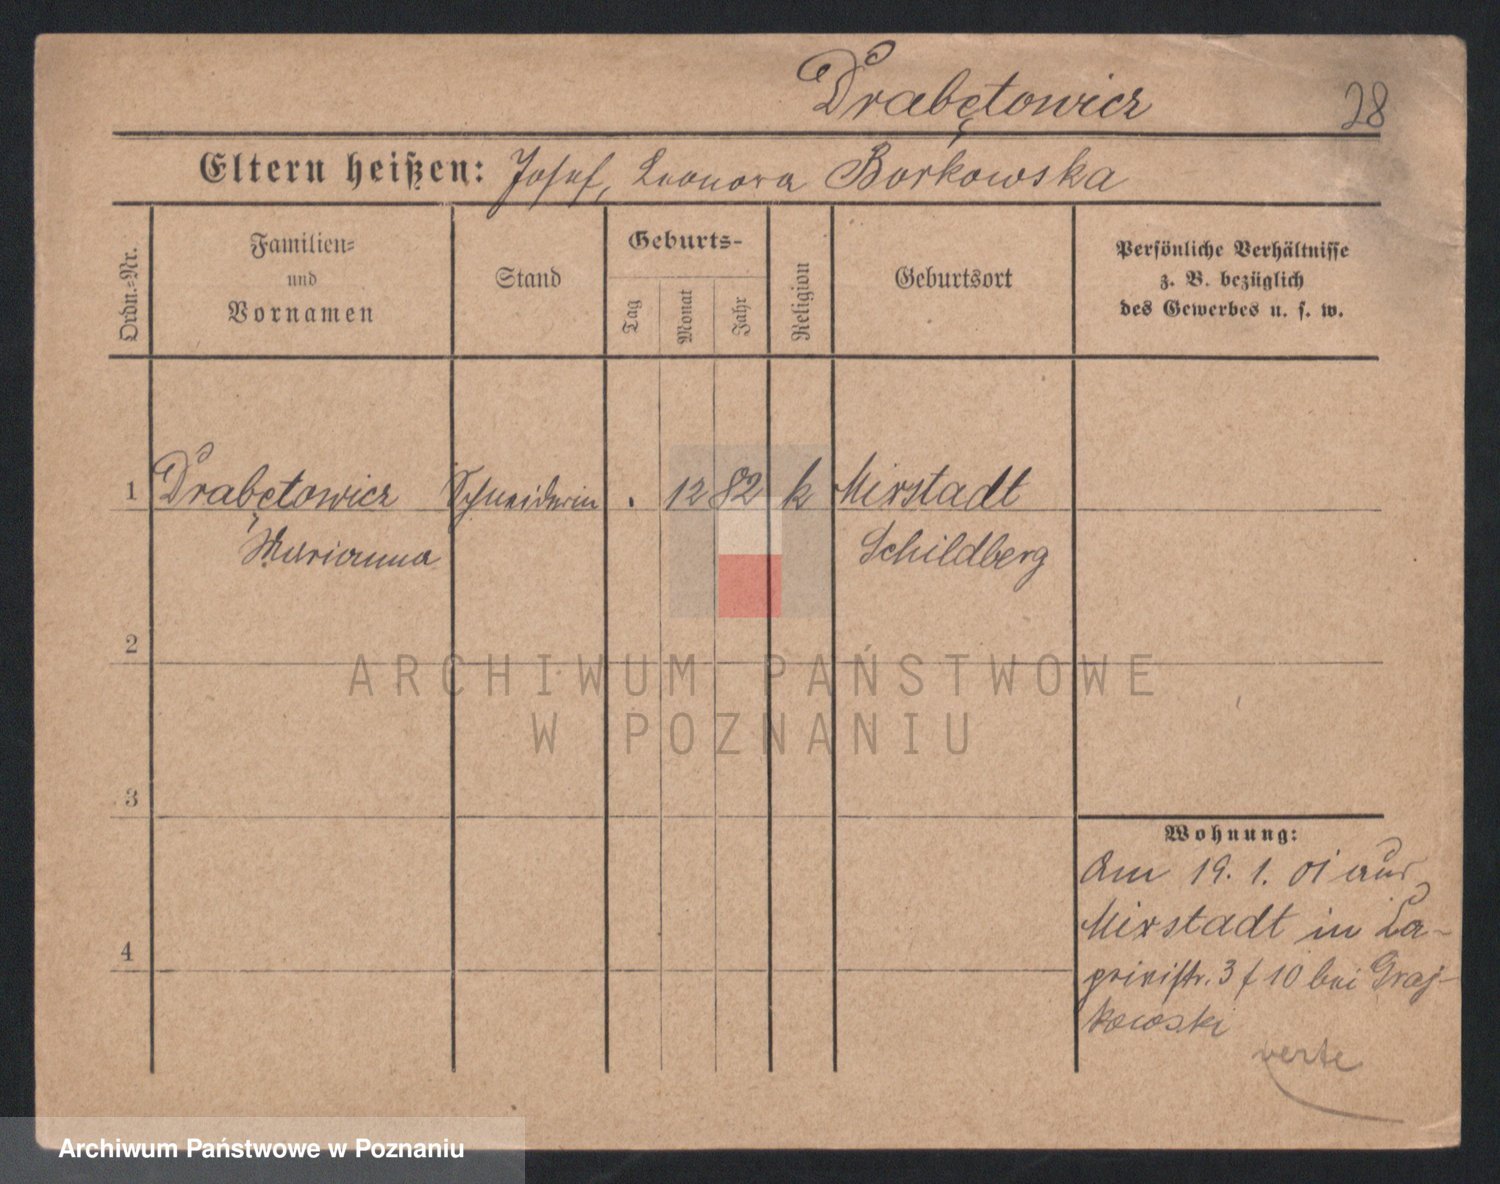 Drabętowicz 28
Eltern heißen: Josef, Leonora Borkowska
Ordn.-Nr.
Familien=
und
Vornamen
Stand
Geburts-
Tag
Monat
Jahr
Religion
Geburtsort
Persönliche Verhältnisse
z. B. bezüglich
des Gewerbes u. s. w.
1 Drabętowicz Schneiderin . 12 82 k Mixstadt
Marianna Schildberg
2
ARCHIWUM PAŃSTWOWE
W POZNANIU
3
Wohnung:
Am 19. 1. 01 aus
Mixstadt in
4
3 f 10 bei Graj-
kowski
verte
Archiwum Państwowe w Poznaniu